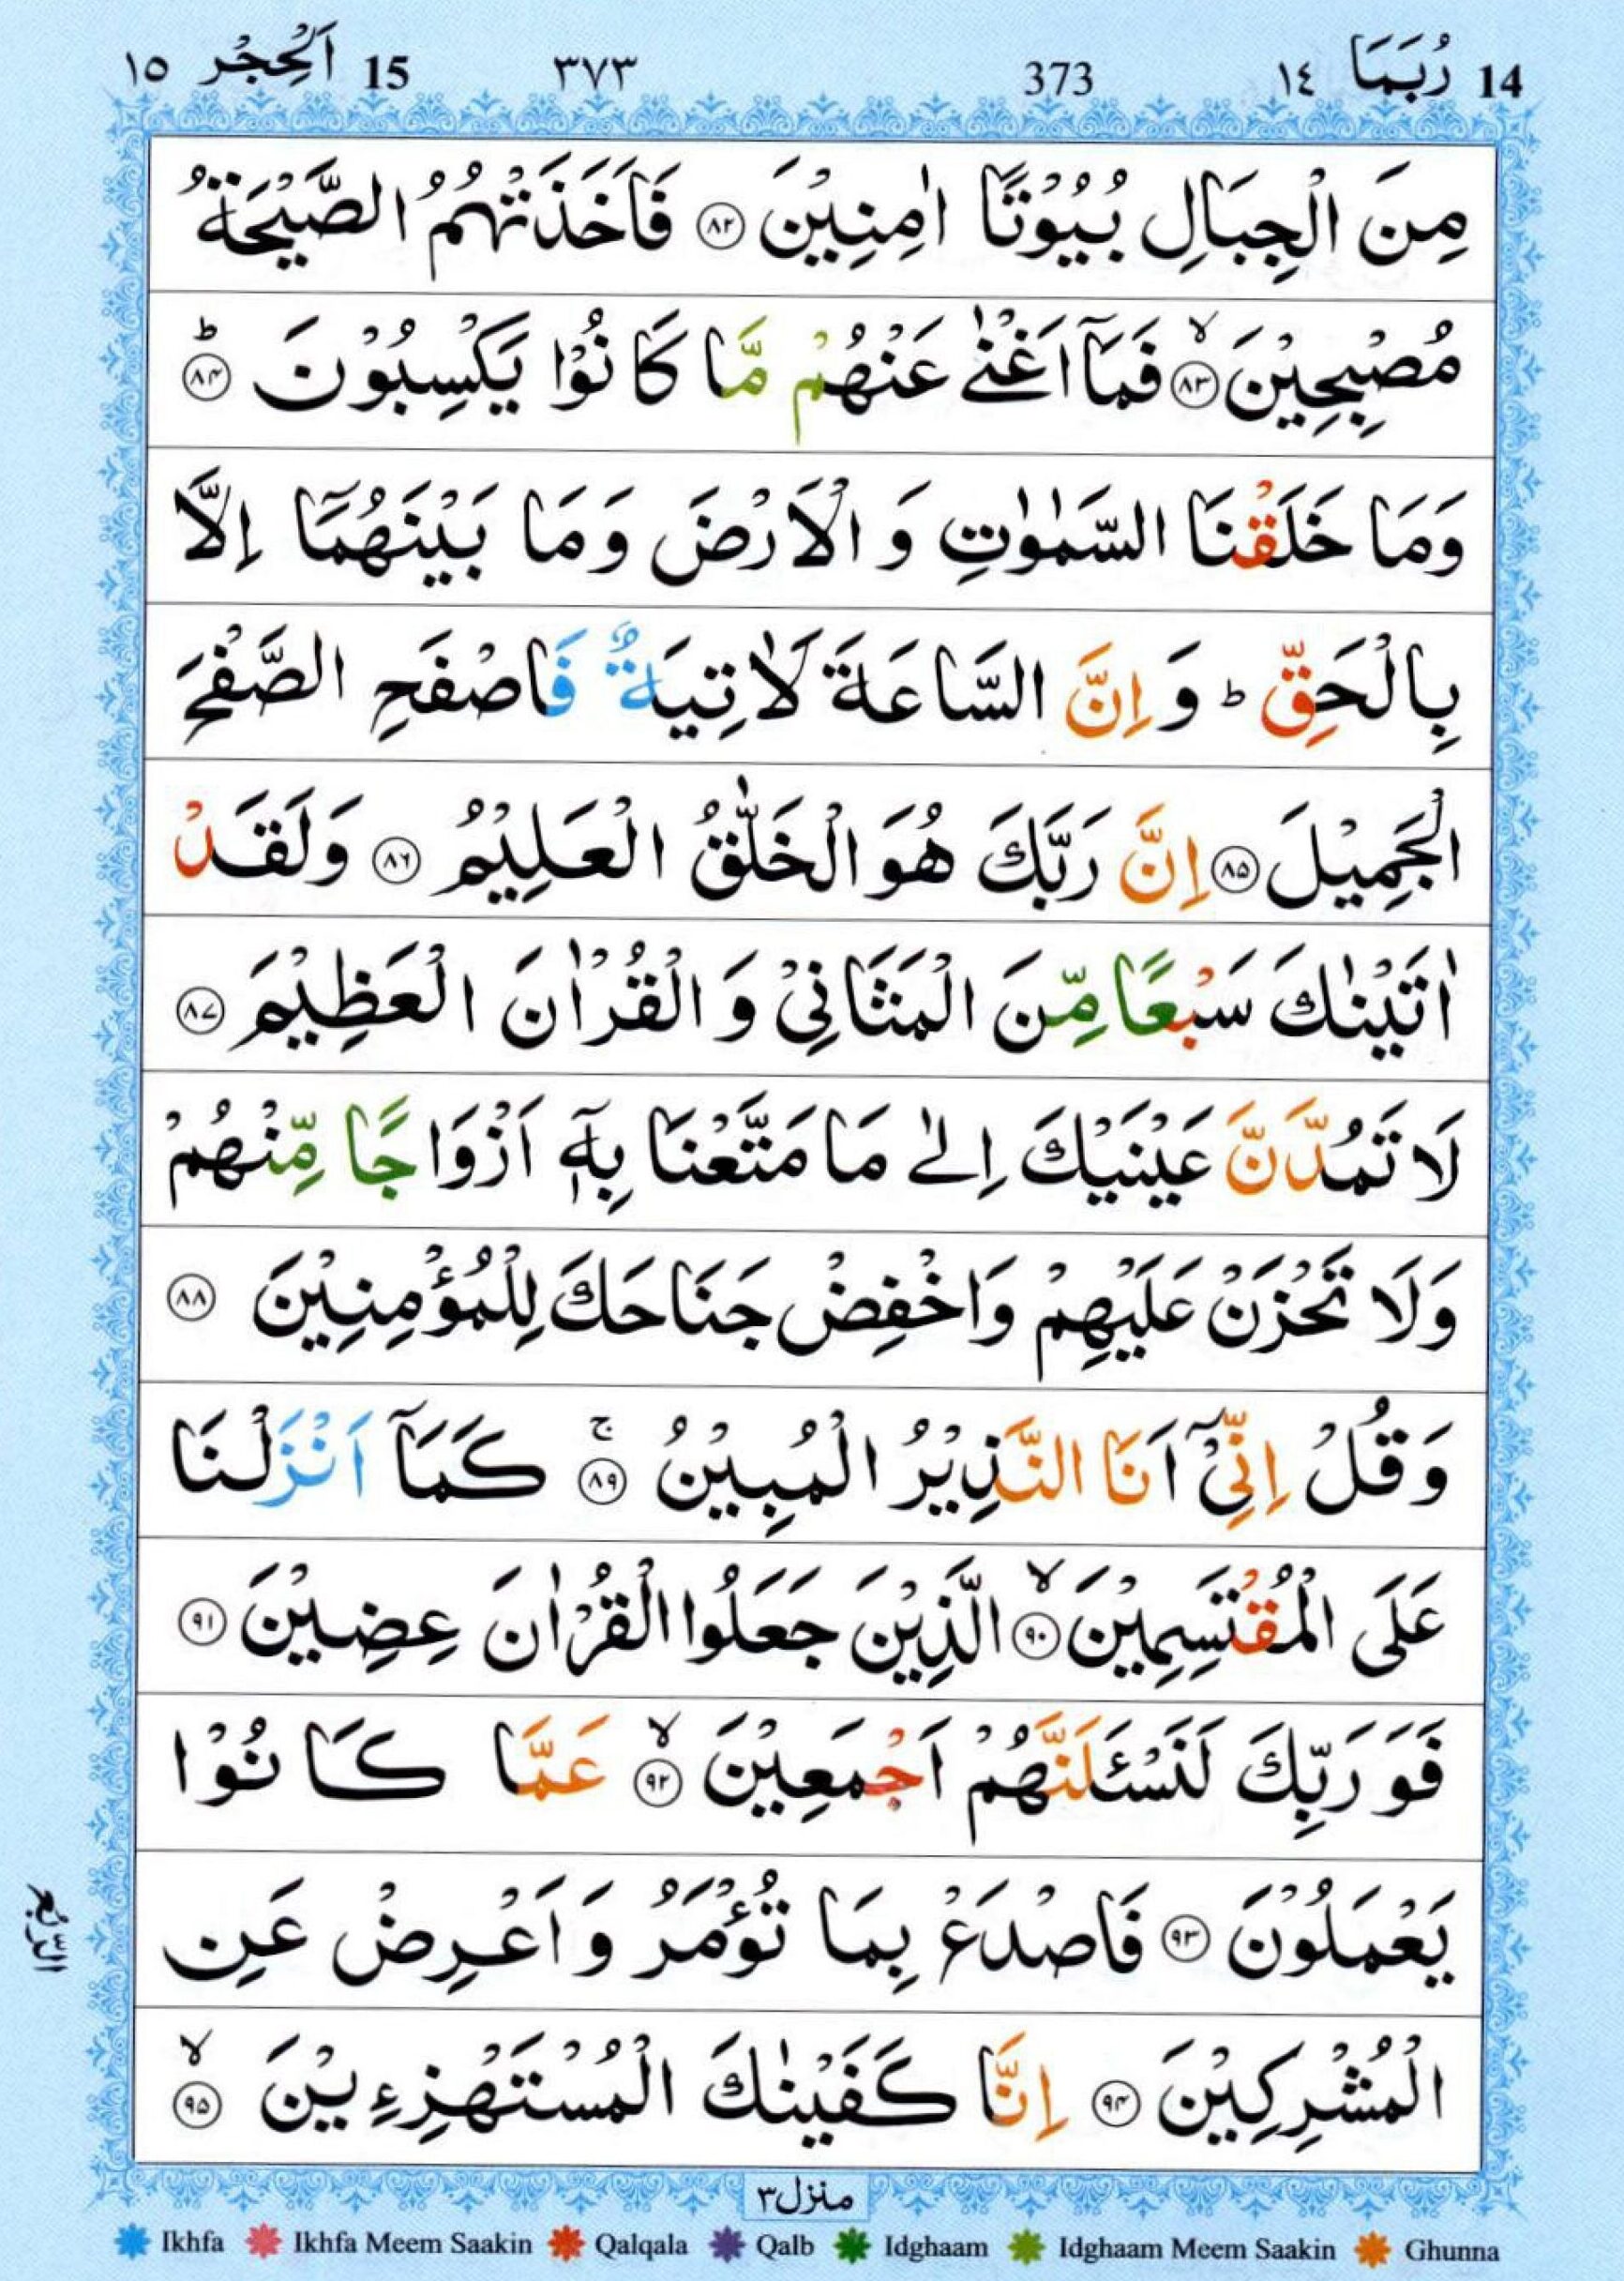 14 رُبَمَا ١٤ 373 ٣٧٣ 15 اَلْحِجْر ١٥
مِنَ الْجِبَالِ بُيُوْتًا اٰمِنِيْنَ ۝٨٢ فَاَخَذَتْهُمُ الصَّيْحَةُ
مُصْبِحِيْنَ ۝٨٣ۙ فَمَاۤ اَغْنٰى عَنْهُمْ مَّا كَانُوْا يَكْسِبُوْنَ ۝٨٤ؕ
وَمَا خَلَقْنَا السَّمٰوٰتِ وَ الْاَرْضَ وَمَا بَيْنَهُمَاۤ اِلَّا
بِالْحَقِّ ؕ وَ اِنَّ السَّاعَةَ لَاٰتِيَةٌ فَاصْفَحِ الصَّفْحَ
الْجَمِيْلَ ۝٨٥ اِنَّ رَبَّكَ هُوَ الْخَلّٰقُ الْعَلِيْمُ ۝٨٦ وَلَقَدْ
اٰتَيْنٰكَ سَبْعًا مِّنَ الْمَثَانِيْ وَ الْقُرْاٰنَ الْعَظِيْمَ ۝٨٧
لَا تَمُدَّنَّ عَيْنَيْكَ اِلٰى مَا مَتَّعْنَا بِهٖۤ اَزْوَاجًا مِّنْهُمْ
وَلَا تَحْزَنْ عَلَيْهِمْ وَاخْفِضْ جَنَاحَكَ لِلْمُؤْمِنِيْنَ ۝٨٨
وَقُلْ اِنِّيْۤ اَنَا النَّذِيْرُ الْمُبِيْنُ ۝٨٩ۚ كَمَاۤ اَنْزَلْنَا
عَلَى الْمُقْتَسِمِيْنَ ۝٩٠ۙ الَّذِيْنَ جَعَلُوا الْقُرْاٰنَ عِضِيْنَ ۝٩١
فَوَرَبِّكَ لَنَسْـَٔلَنَّهُمْ اَجْمَعِيْنَ ۝٩٢ۙ عَمَّا كَانُوْا
يَعْمَلُوْنَ ۝٩٣ فَاصْدَعْ بِمَا تُؤْمَرُ وَ اَعْرِضْ عَنِ
الرُّبُع
الْمُشْرِكِيْنَ ۝٩٤ اِنَّا كَفَيْنٰكَ الْمُسْتَهْزِءِيْنَ ۝٩٥ۙ
منزل ٣
Ikhfa Ikhfa Meem Saakin Qalqala Qalb Idghaam Idghaam Meem Saakin Ghunna